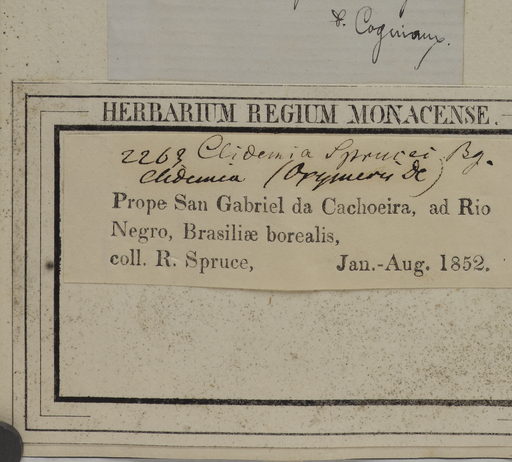 A. Cogniaux.
HERBARIUM REGIUM MONACENSE.
2263 Clidemia Sprucei Bg.
Clidemia (Oxymeris DC)
Prope San Gabriel da Cachoeira, ad Rio
Negro, Brasiliæ borealis,
coll. R. Spruce, Jan.-Aug. 1852.